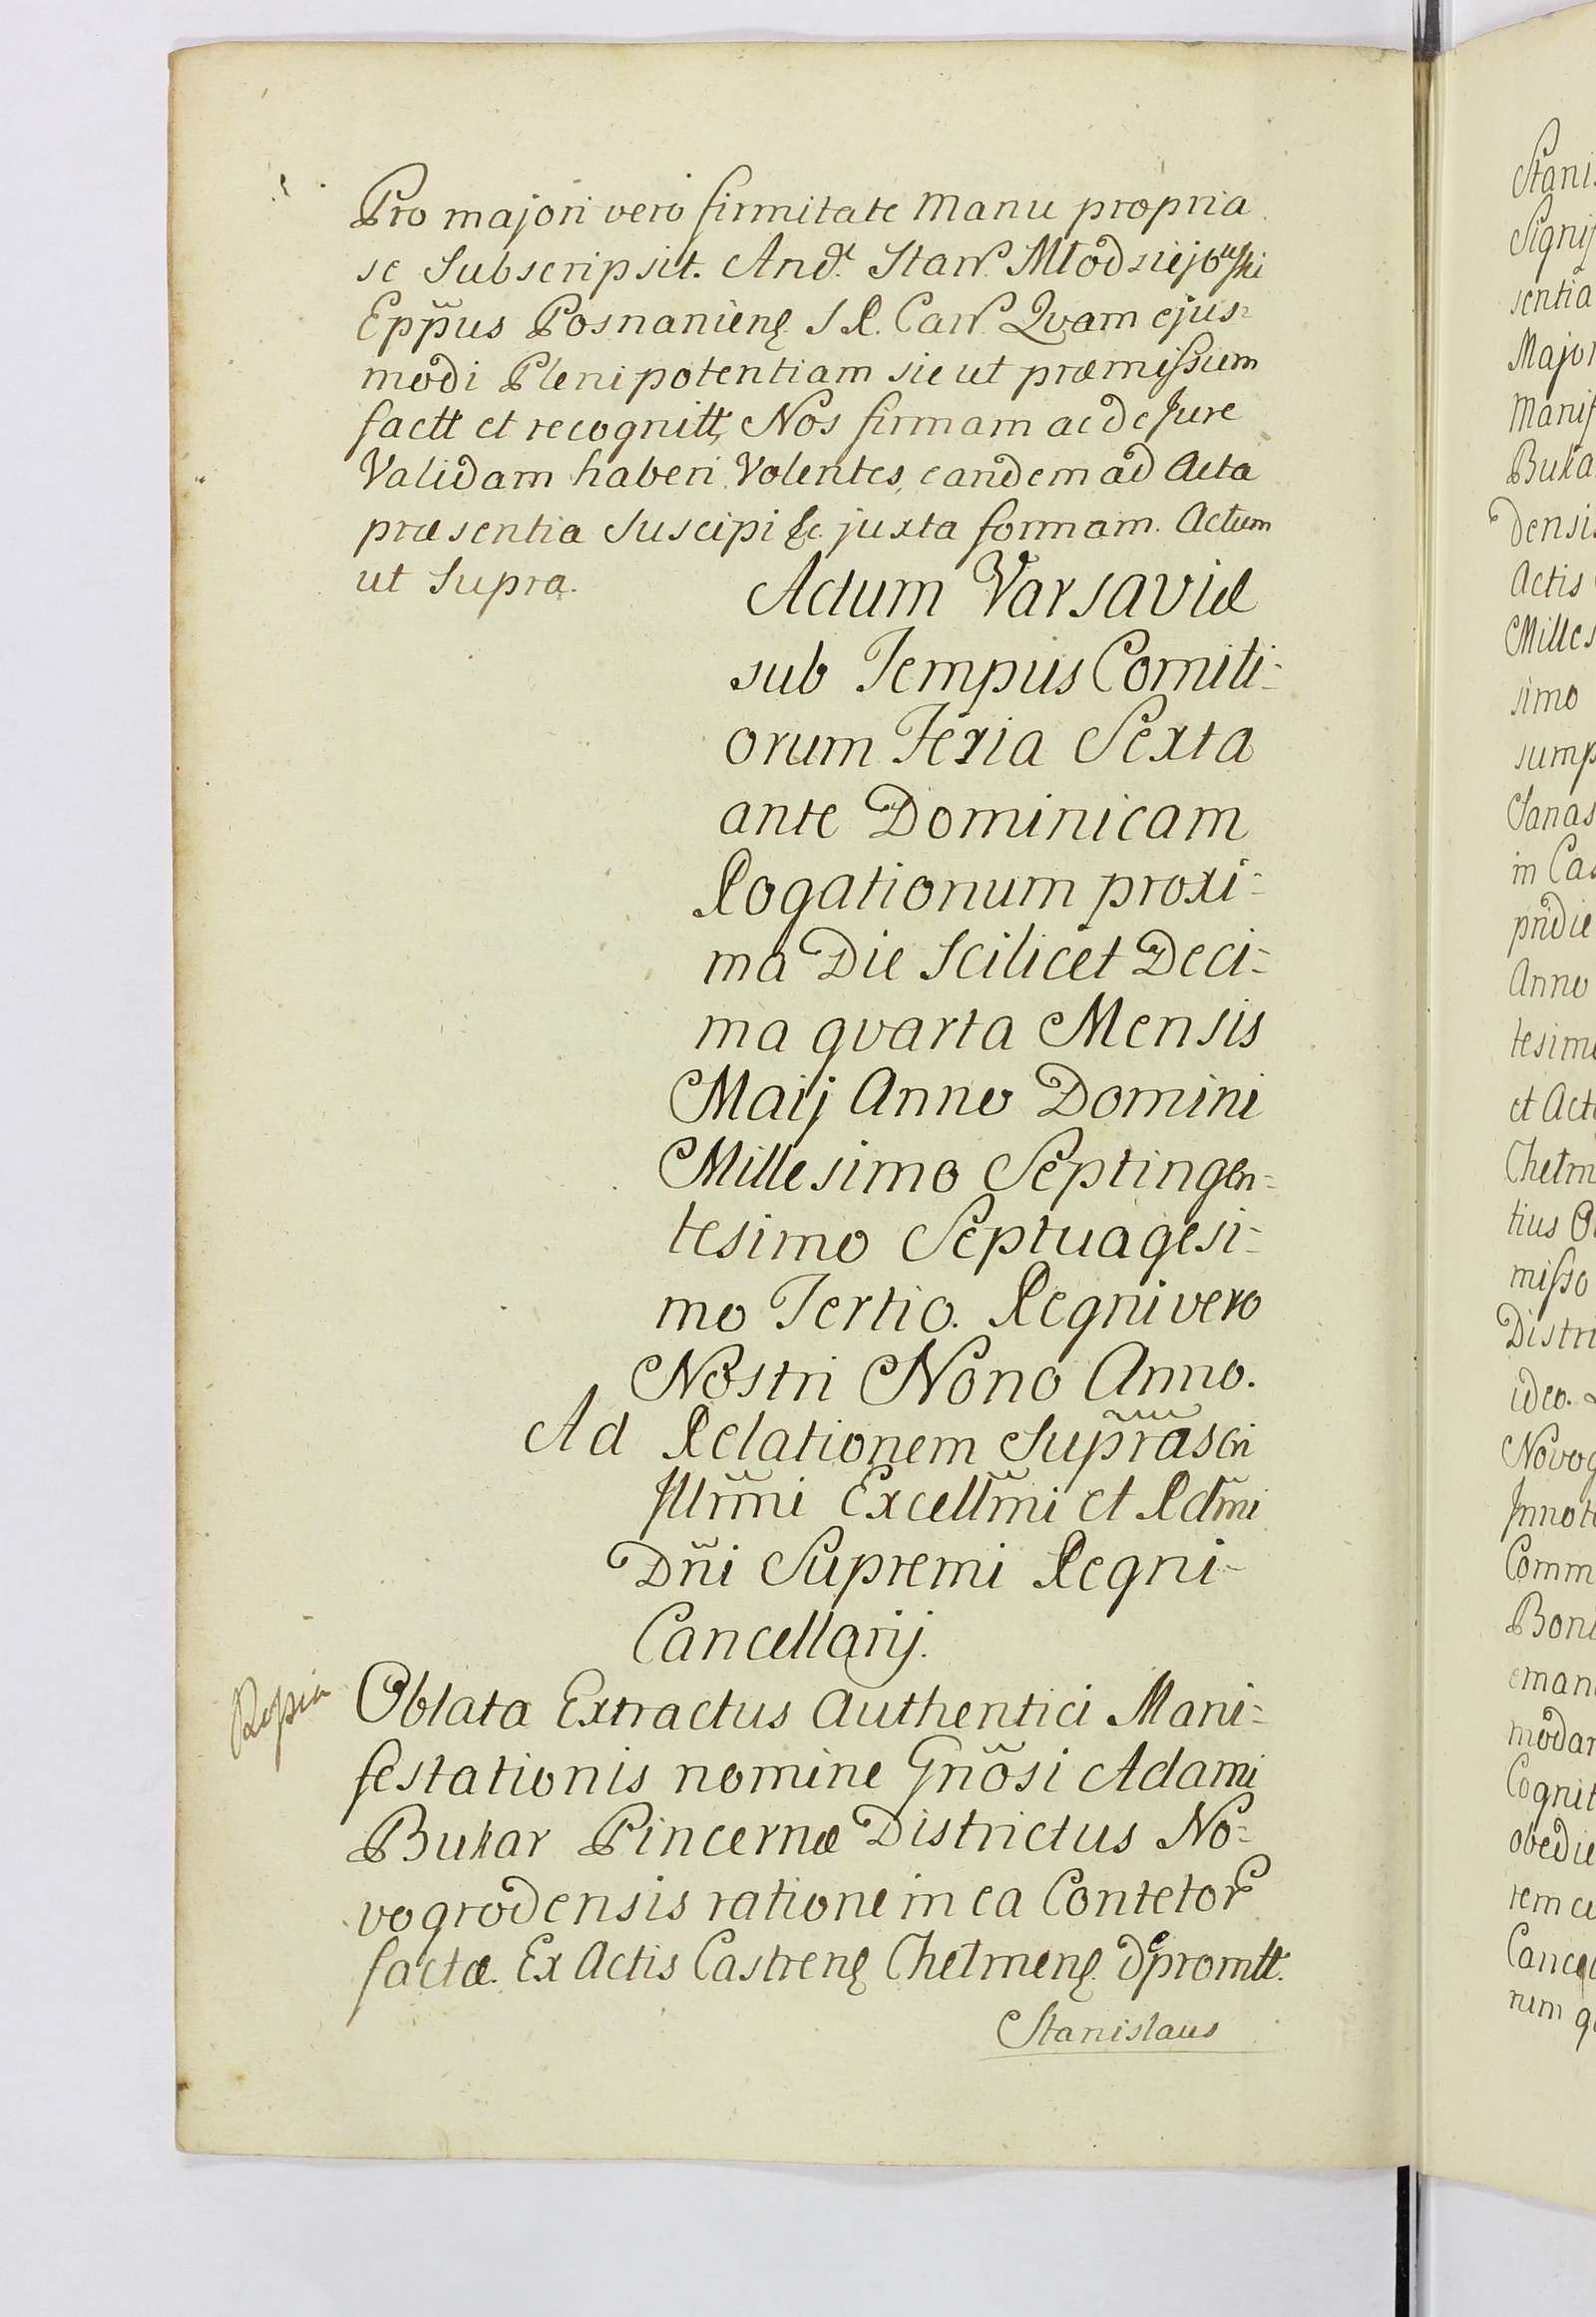 Pro majori vero firmitate manu propria
se Subscripsit. And. Stan. Młodziejowski
Eppus Posnanien. S R. Can. Qvam ejus=
modi Plenipotentiam sic ut præmissum
factt et recognitt, Nos firmam ac de Jure
Validam haberi Volentes, eandem ad Acta
præsentia Suscipi &c. juxta formam. Actum
ut Supra.
Actum Varsaviæ
sub Tempus Comiti=
orum Feria Sexta
ante Dominicam
Rogationum proxi=
ma Die Scilicet Deci=
ma qvarta Mensis
Maij Anno Domini
Millesimo Septingen=
tesimo Septuagesi=
mo Tertio. Regni vero
Nostri Nono Anno.
Ad Relationem Suprascri
Illrmi Excellmi et Rdmi
Dni Supremi Regni
Cancellarij.
Oblata Extractus Authentici Mani=
festationis nomine Gnosi Adami
Bukar Pincernæ Districtus No=
vogrodensis ratione in ea Contetor
factæ. Ex Actis Castren Chełmen. depromtt.
Stanislaus
Stanis
Signif
sentia
Major
Manif
Buka
densis
Actis
Milles
simo
sump
Sanas
in Cas
pridie
Anno
tesimo
et Acto
Chełm
tius O
misso
Distri
ideo.
Novog
Innot
Comm
Boni
eman
modar
Cognit
obedie
rem
Cance
rum